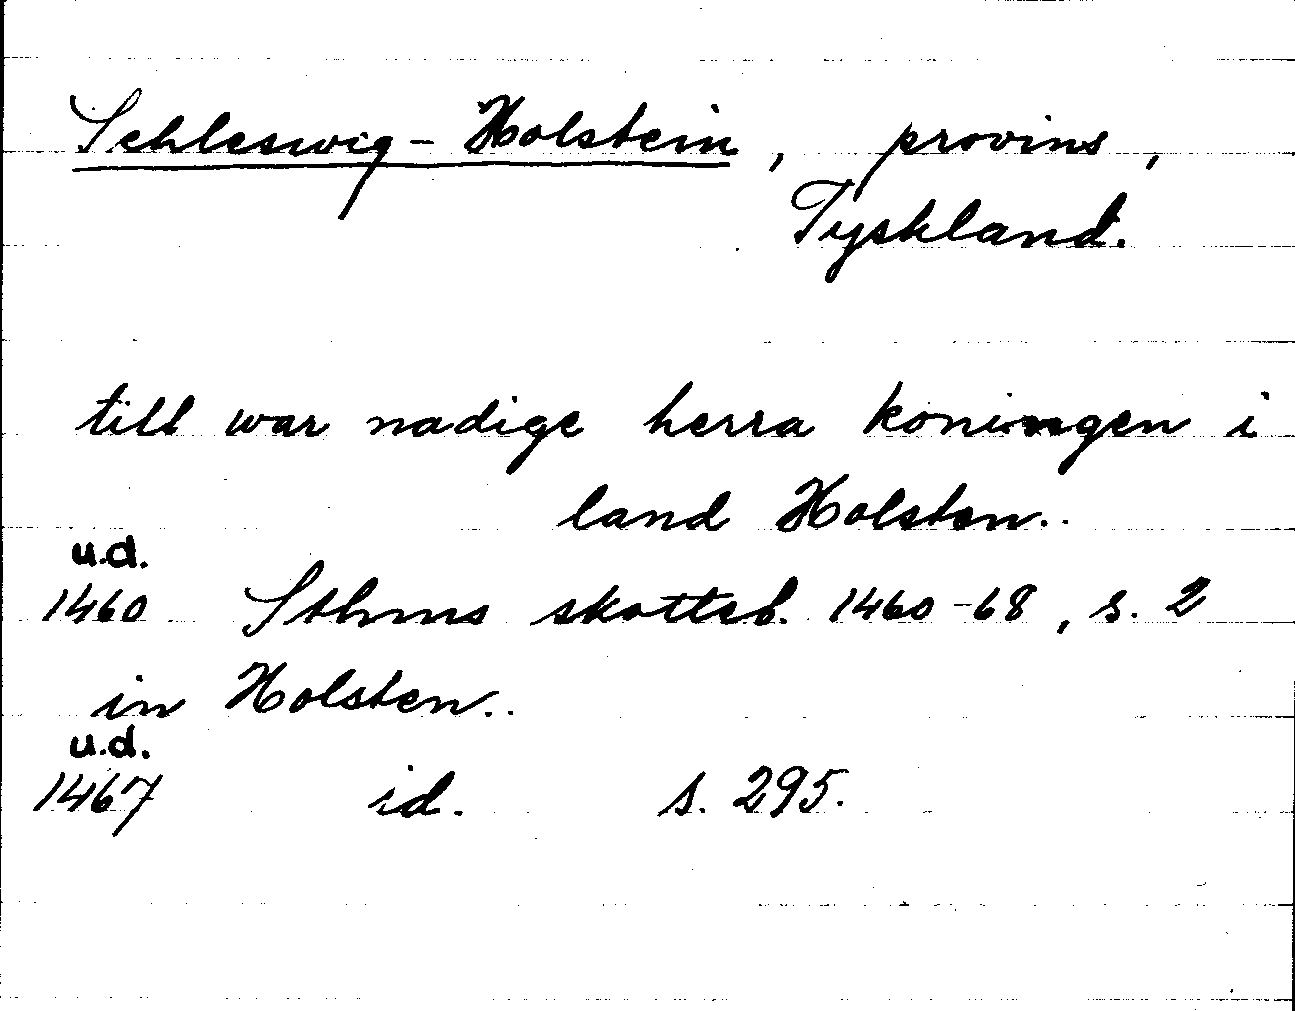 Schleswig-Holstein, provins,
Tyskland.
till war nadige herra koningen i
land Holsten..
u.d.
1460 Sthms skotteb. 1460-68, s. 2
in Holsten..
u.d.
1467 id. s. 295.